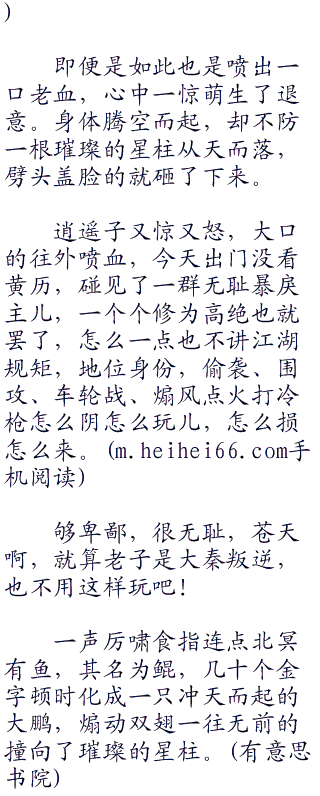 )
即便是如此也是喷出一
口老血，心中一惊萌生了退
意。身体腾空而起，却不防
一根璀璨的星柱从天而落，
劈头盖脸的就砸了下来。
逍遥子又惊又怒，大口
的往外喷血，今天出门没看
黄历，碰见了一群无耻暴戾
主儿，一个个修为高绝也就
罢了，怎么一点也不讲江湖
规矩，地位身份，偷袭、围
攻、车轮战、煽风点火打冷
枪怎么阴怎么玩儿，怎么损
怎么来。(m.heihei66.com手
机阅读)
够卑鄙，很无耻，苍天
啊，就算老子是大秦叛逆，
也不用这样玩吧！
一声厉啸食指连点北冥
有鱼，其名为鲲，几十个金
字顿时化成一只冲天而起的
大鹏，煽动双翅一往无前的
撞向了璀璨的星柱。(有意思
书院)